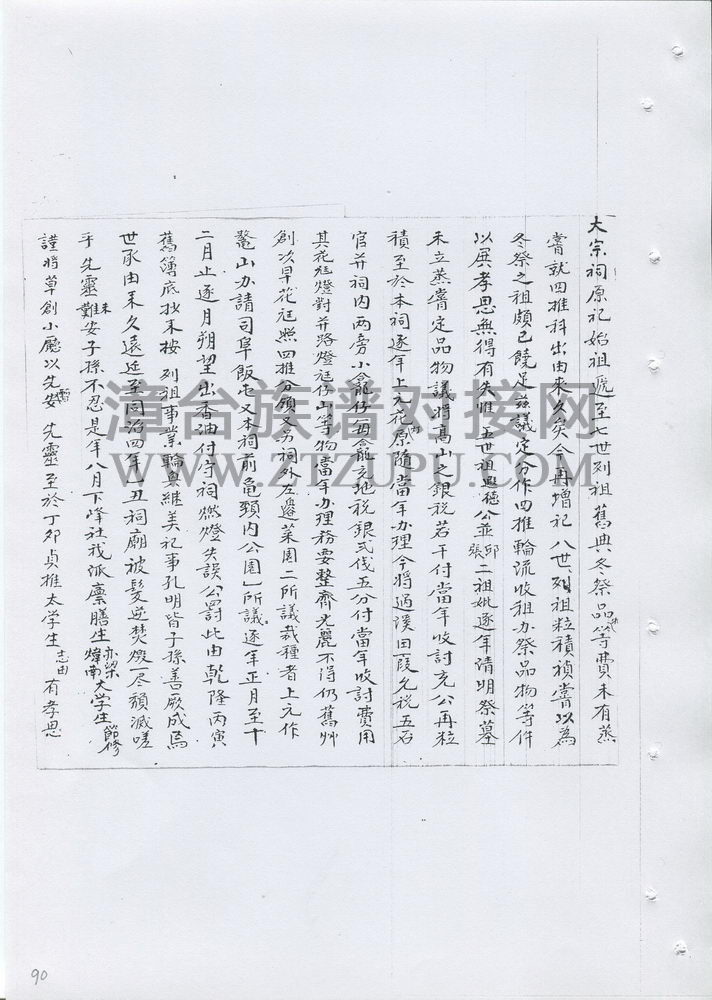 大宗祠原祀始祖遞至七世列祖舊典冬祭品等費未有蒸
嘗就四推科出由來久矣今再增祀八世列祖粒積禎嘗以為
冬祭之祖頗已饒足茲議定分作四推輪流收租办祭品物等件
以展孝思無得有失惟五世祖興德公並邱張二祖妣逐年清明祭墓
未立蒸嘗定品物議將高山之銀税若干付當年收討充公再粒
積至於本祠逐年上元花原隨當年办理今將過溪田叚允税五石
官并祠内两旁小龕仔每龕充地税銀弍伐五分付當年收討費用
其花𤇾燈對并路燈𤇾仔山等物當年办理務要整齊光麗不得仍舊艸
創次早花𤇾照四推分領又另祠外左邉菜園二所議栽種者上元作
鰲山办請司阜飯屯又本祠前龟頸内公園」所議逐年正月至十
二月止逐月朔望出香油付守祠燃燈失誤公罰此由乾隆丙寅
舊簿底抄來按列祖事業輪奐維美祀事孔明皆子孫善厥成焉
世承由来久遠延至同治四年乙丑祠廟被髮逆焚燬尽頽滅嗟
乎先靈未難安子孫不忍是年八月下降社戎派禀膳生亦梁煒南大学生節修
謹將草創小廳以先安先靈至於丁夘貞推太学生志由有孝思
津台族谱对接网
WWW.ZTZUPU.COM
90